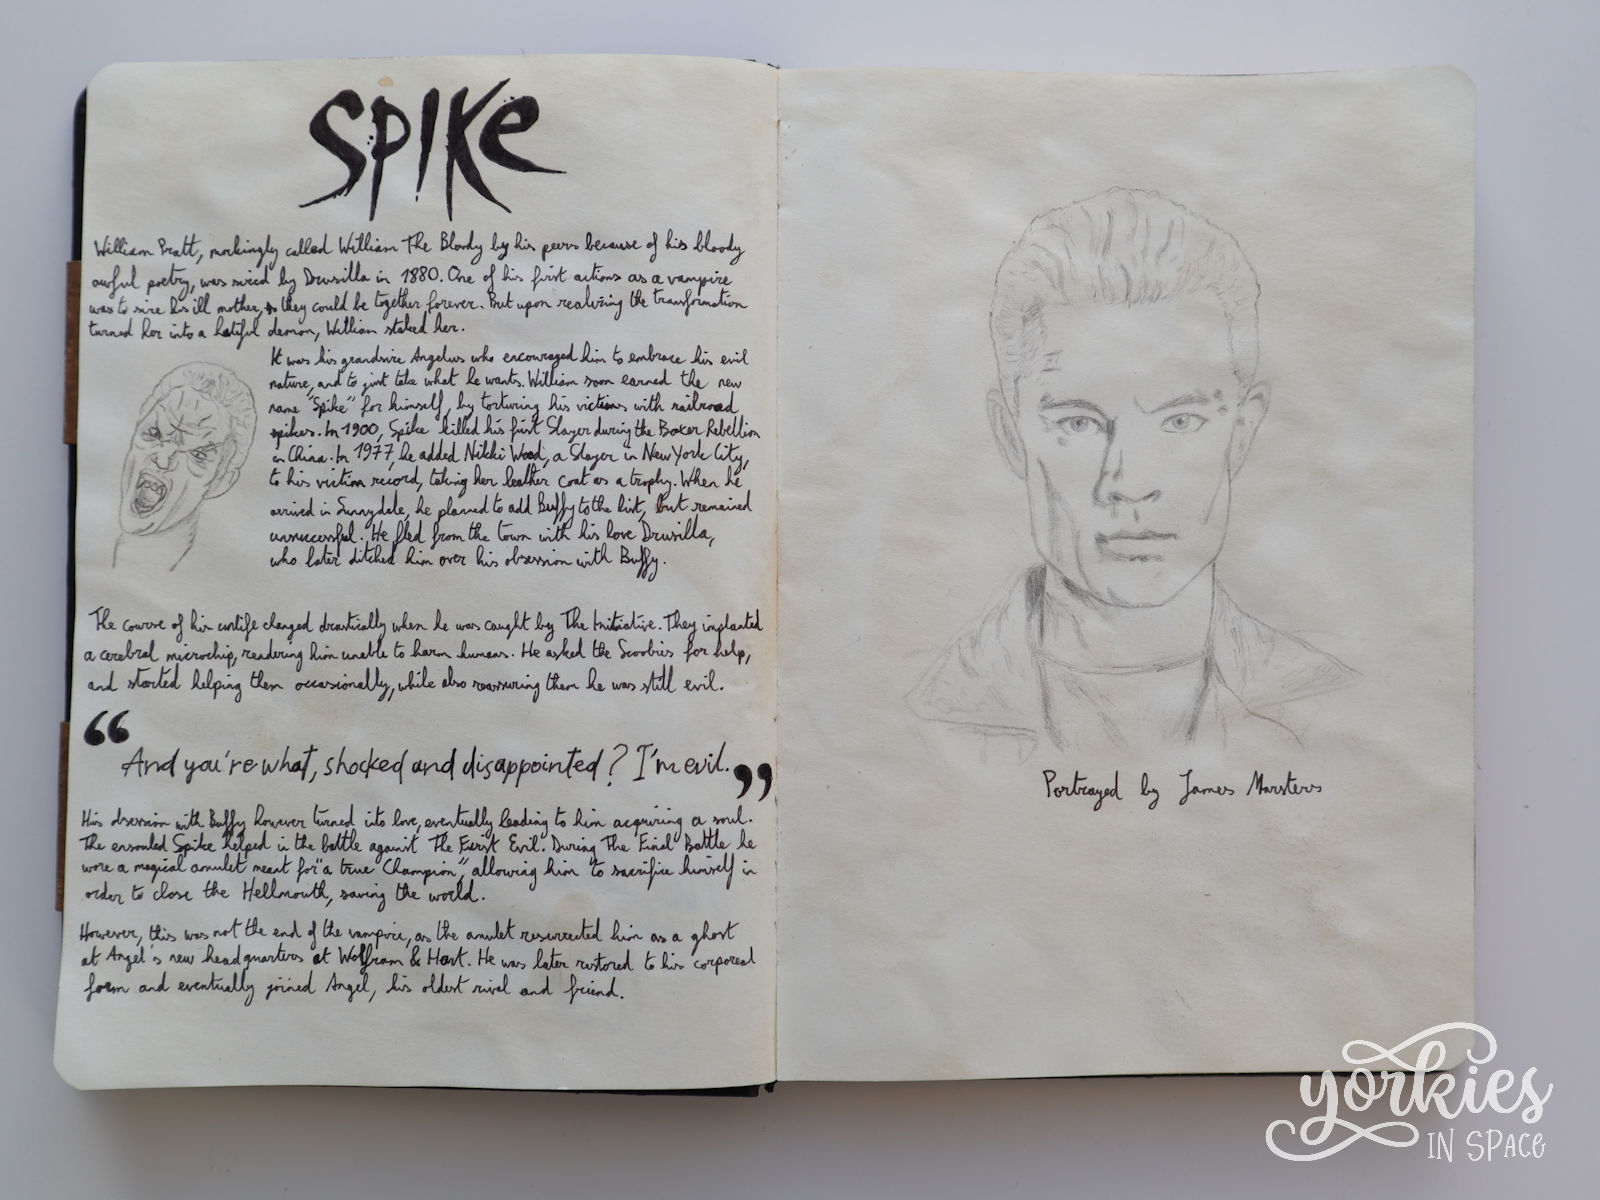 SPIKE
William Pratt, mockingly called William The Bloody by his peers because of his bloody
awful poetry, was sired by Drusilla in 1880. One of his first actions as a vampire
was to sire his ill mother, so they could be together forever. But upon realizing the transformation
turned her into a hateful demon, William staked her.
It was his grandsire Angelus who encouraged him to embrace his evil
nature, and to just take what he wants. William soon earned the new
name "Spike" for himself, by torturing his victims with railroad
spikes. In 1900, Spike killed his first Slayer during the Boxer Rebellion
in China. In 1977, he added Nikki Wood, a Slayer in New York City,
to his victim record, taking her leather coat as a trophy. When he
arrived in Sunnydale, he planned to add Buffy to the list, but remained
unsuccessful. He fled from the town with his love Drusilla,
who later ditched him over his obsession with Buffy.
The course of his unlife changed drastically when he was caught by The Initiative. They implanted
a cerebral microchip, rendering him unable to harm humans. He asked the Scoobies for help,
and started helping them occasionally, while also reassuring them he was still evil.
“And you're what, shocked and disappointed? I'm evil.”
His obsession with Buffy however turned into love, eventually leading to him acquiring a soul.
The ensouled Spike helped in the battle against The First Evil. During The Final Battle he
wore a magical amulet meant for "a true Champion", allowing him to sacrifice himself in
order to close the Hellmouth, saving the world.
However, this was not the end of the vampire, as the amulet resurrected him as a ghost
at Angel's new headquarters at Wolfram & Hart. He was later restored to his corporeal
form and eventually joined Angel, his oldest rival and friend.
Portrayed by James Marsters
yorkies
IN SPACE